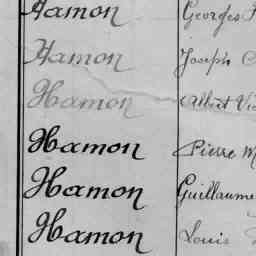 Hamon Georges
Hamon Joseph
Hamon Albert
Hamon Pierre M
Hamon Guillaume
Hamon Louis